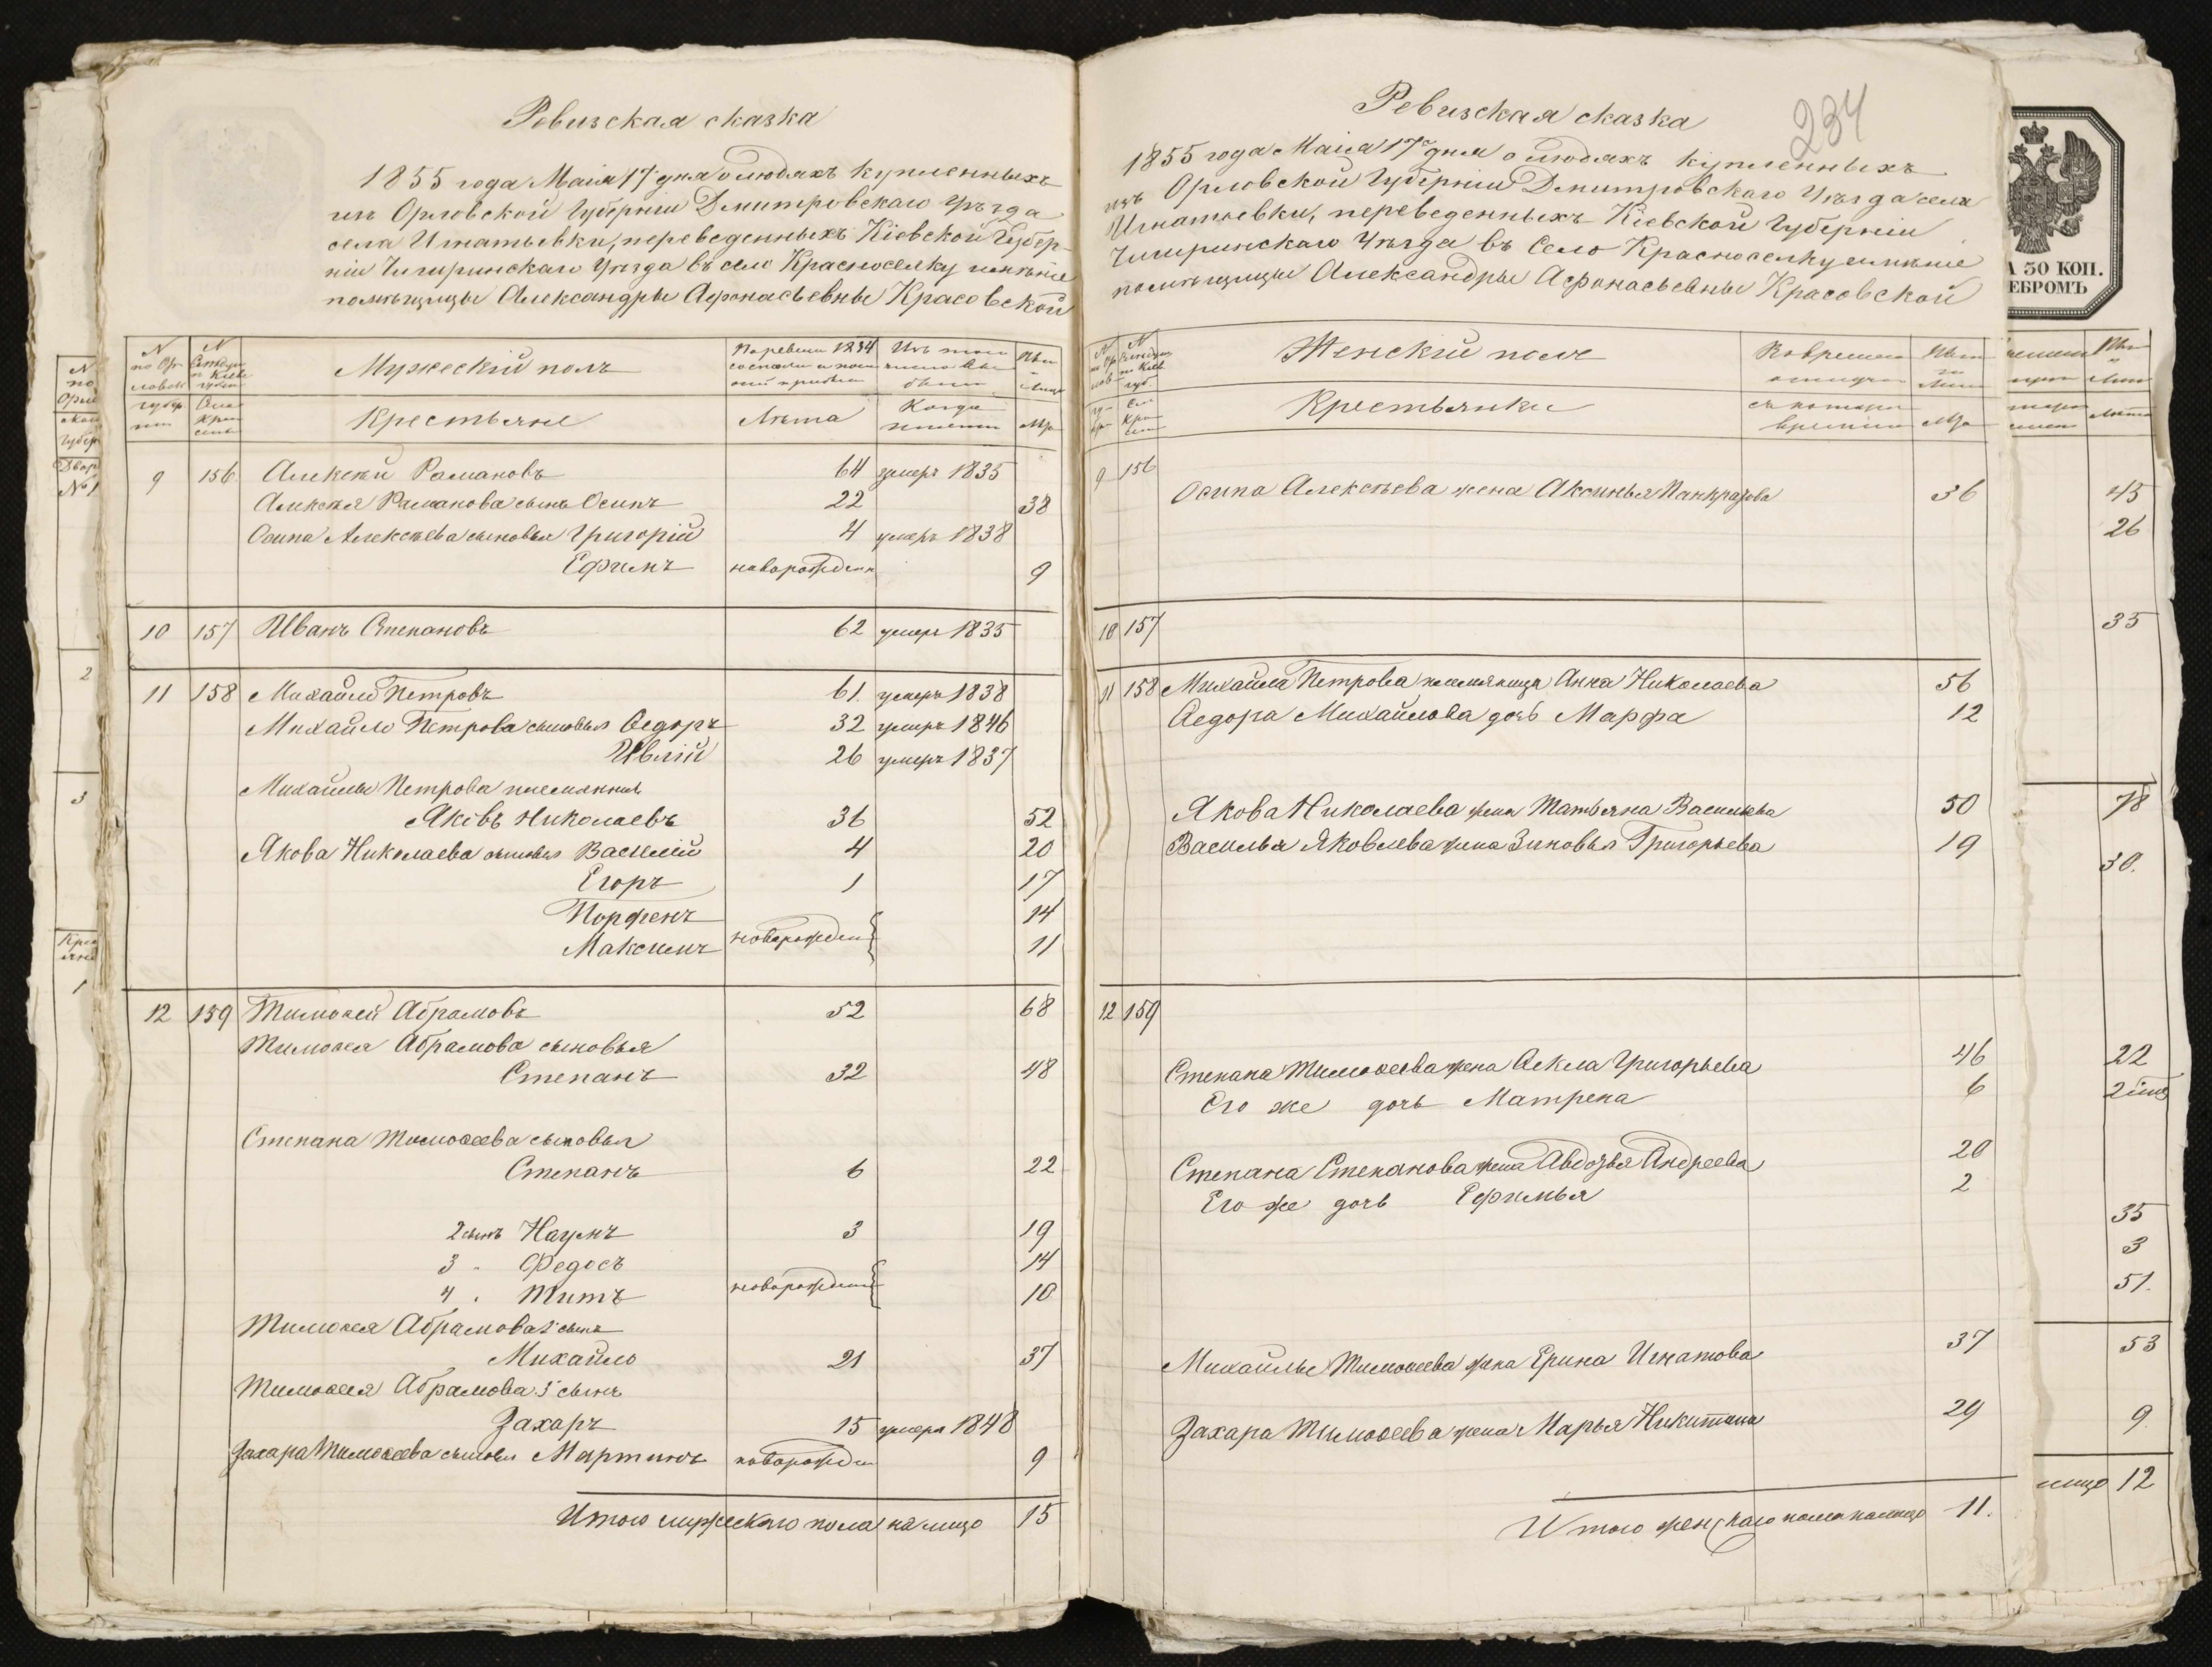 Ревизская сказка
1855 года Маія 17 дня о людяхъ купленныхъ
изъ Орловской Губерніи Дмитровскаго Уѣзда
села Игнатьевки, переведенныхъ Кіевской Губер-
ніи Чигиринскаго Уѣзда въ село Красноселку имѣніе
помѣщицы Александры Афонасьевны Красовской
N по Ор ловск губер ніи
N
Мужескій полъ
По ревизіи 1834
Изъ того
Крестьяне
Лѣта
Когда
9 156 Алексѣй Рамановъ 64 умеръ 1835
Алексѣя Раманова сынъ Осипъ 22 38
Осипа Алексѣева сыновья Григорій 4 умеръ 1838
Ефимъ новорожден 9
10 157 Иванъ Степановъ 62 умеръ 1835
11 158 Михайло Петровъ 61. умеръ 1838
Михайло Петрова сыновья Ѳедоръ 32 умеръ 1846
Ивлій 26 умеръ 1837
Михайлы Петрова племянникъ
Яковъ Николаевъ 36 52
Якова Николаева сыновья Василій 4 20
Егоръ 1 17
Порфенъ 14
Максимъ новорожден 11
12 159 Тимоѳей Абрамовъ 52 68
Тимоѳея Абрамова сыновья
Степанъ 32 48
Степана Тимоѳеева сыновья
Степанъ 6 22
2 сынъ Наумъ 3 19
3 - Федосъ 14
4 . Титъ новорожден 10
Тимоѳея Абрамова 2 сынъ
Михайло 21 37
Тимоѳея Абрамова 3 сынъ
Захаръ 15 умеръ 1848
Захара Тимоѳеева сыновья Мартинъ новорожден 9
Итого мужескаго пола на лицо 15
234
Ревизская сказка
1855 года Маіа 17 дня о людяхъ купленныхъ
изъ Орловской Губерніи Дмитровскаго Уѣзда села
Игнатьевки, переведенныхъ Кіевской Губерніи
Чигиринскаго Уѣзда въ Село Красноселку имѣніе
помѣщицы Александры Афонасьевны Красовской
Женскій полъ
Крестьянки
9 156
Осипа Алексѣева жена Аксинья Панкратова 36
10 157
11 158 Михайла Петрова племяница Анна Николаева 56
Ѳедора Михайлова дочь Марфа 12
Якова Николаева жена Татьяна Васильева 50
Василья Яковлева жена Зиновья Григорьева 19
12 159
Степана Тимоѳеева жена Ѳекла Григорьева 46
Его же дочь Матрена 6
Степана Степанова жена Авдотья Андреева 20
Его же дочь Ефимья 2
Михайлы Тимоѳеева жена Ерина Игнатова 37
Захара Тимоѳеева жена Марья Никитина 29
Итого женскаго пола налицо 11.
А 50 КОП.
ЕБРОМЪ
45
26
35
78
30.
22
35
3
51.
53
9
лицо 12